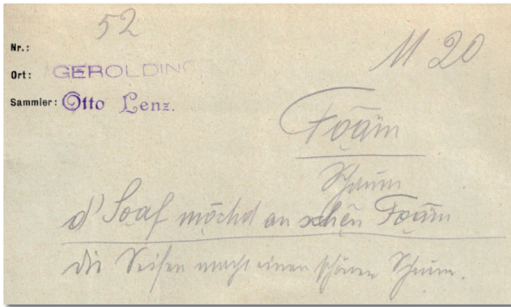 52
M 20
Nr.:
Ort: GEROLDING
Sammler: Otto Lenz.
Foãm
Schaum
d' Soaf möchd an schen Foãm
die Seifen macht einen schönen Schaum.